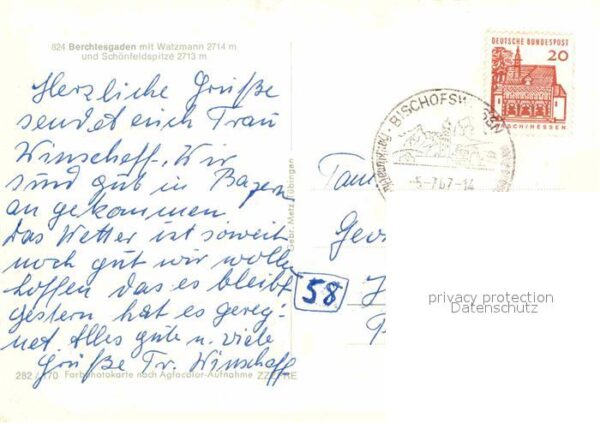 824 Berchtesgaden mit Watzmann 2714 m
und Schönfeldspitze 2713 m
Herzliche Grüße
sendet euch Frau
Winscheff. Wir
sind gut in Bayern
an gekommen
Das Wetter ist soweit
noch gut wir wollen
hoffen das es bleibt
gestern hat es gereg-
net. Alles gute u. viele
Grüße Fr. Winscheff
282 / 170 Farbphotokarte nach Agfacolor-Aufnahme
Gebr. Metz Tübingen
BISCHOFSW
-5-7 67-14
DEUTSCHE BUNDESPOST
20
LORSCH/HESSEN
Fam
Geo
58
privacy protection
Datenschutz